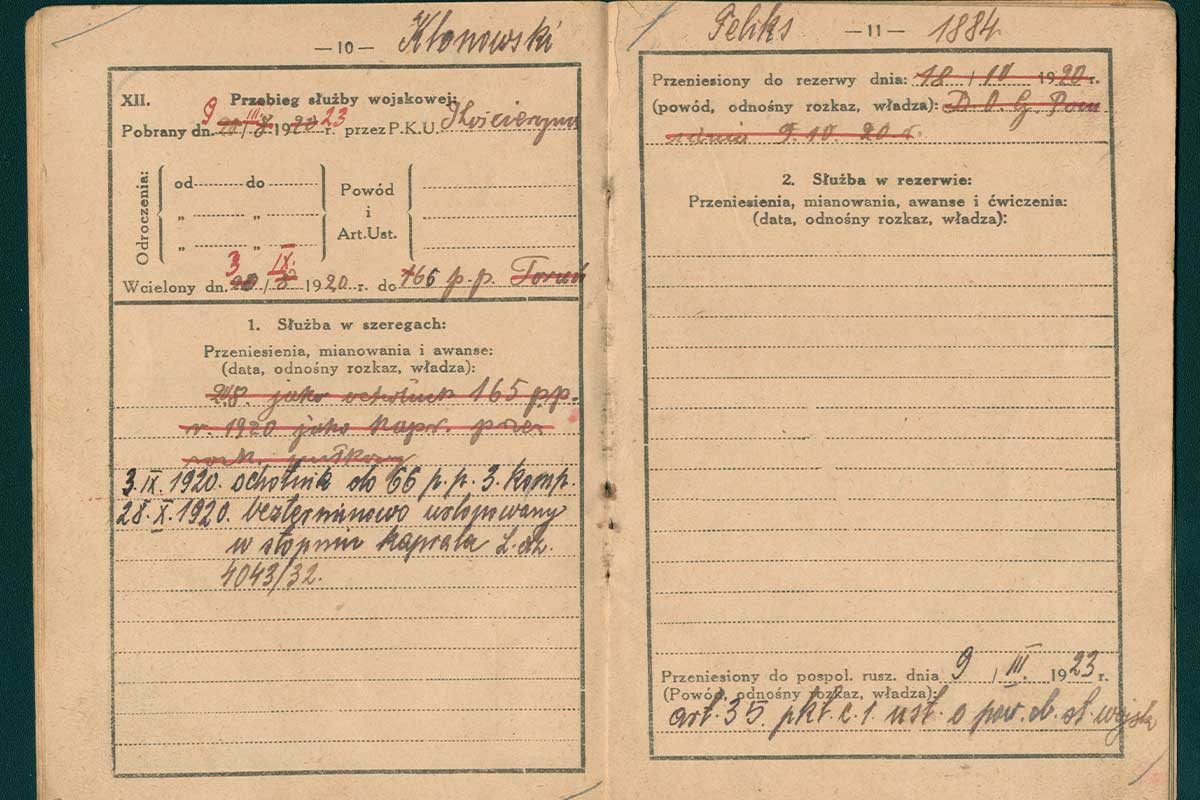 — 10 — Kłonowski
XII. Przebieg służby wojskowej:
9 III 23
Pobrany dn. 192 r. przez P.K.U. Kościerzyna
Odroczenia:
od do
„ „
„ „
Powód
i
Art.Ust.
3 IX.
Wcielony dn. / 8 1920 r. do 166 p.p. Toruń
1. Służba w szeregach:
Przeniesienia, mianowania i awanse:
(data, odnośny rozkaz, władza):
jako ochotnik 165 p.p.
r. 1920 jako kapr. przez
3. IX. 1920. ochotnik do 66 p. p. 3. komp.
28. X. 1920. bezterminowo urlopowany
w stopniu kaprala L. dz.
4043/32.
Feliks — 11 — 1884
Przeniesiony do rezerwy dnia: 18 / 10 1920 r.
(powód, odnośny rozkaz, władza): D. O. G. Pom
dnia 9. 10. 20 r.
2. Służba w rezerwie:
Przeniesienia, mianowania, awanse i ćwiczenia:
(data, odnośny rozkaz, władza):
Przeniesiony do pospol. rusz. dnia 9 / III. 1923 r.
(Powód, odnośny rozkaz, władza):
art. 35. pkt. c. 1. ust. o pow. ob. sł. wojsk